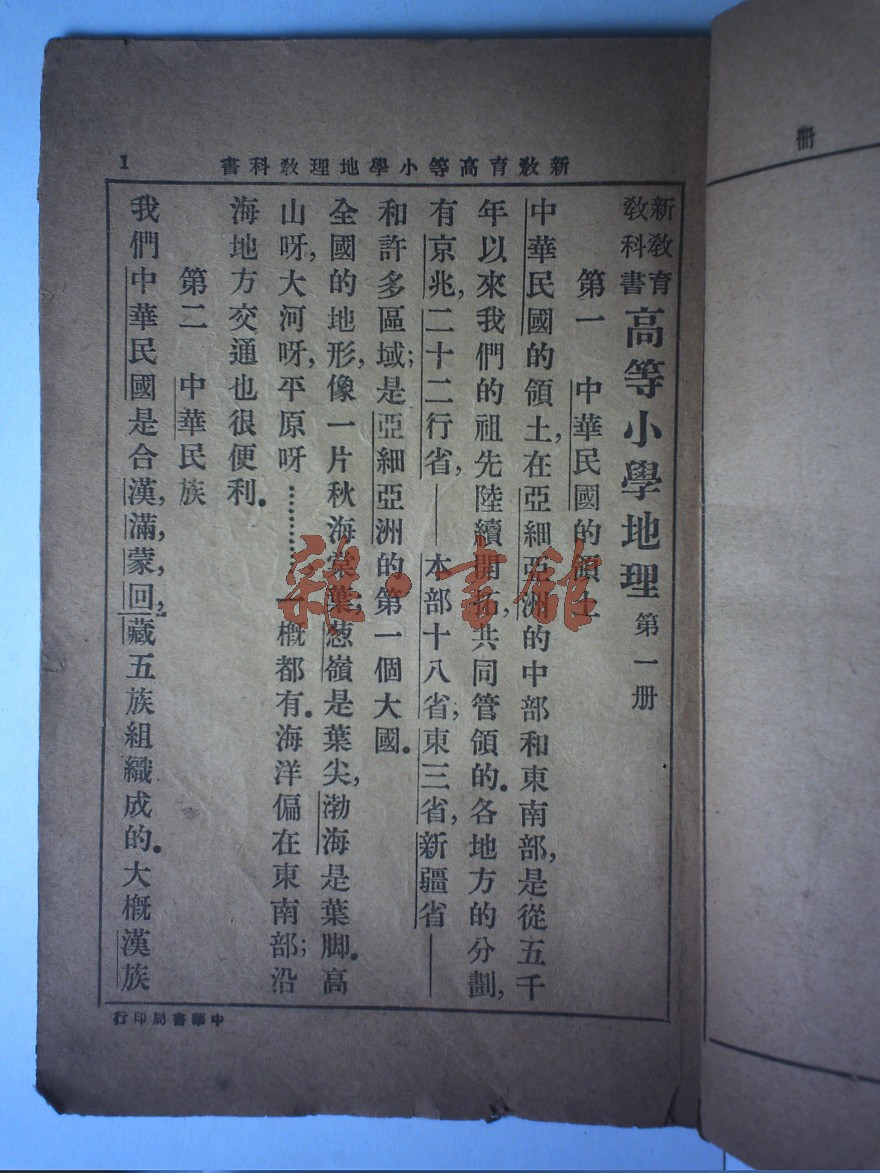 新教育高等小學地理教科書
1
新教育教科書 高等小學地理 第一册
第一 中華民國的領土
中華民國的領土,在亞細亞洲的中部和東南部,是從五千
年以來我們的祖先陸續開拓,共同管領的。各地方的分劃,
有京兆,二十二行省,——本部十八省;東三省,新疆省——
和許多區域;是亞細亞洲的第一個大國。
全國的地形,像一片秋海棠葉,葱嶺是葉尖,渤海是葉脚。高
山呀,大河呀,平原呀…………,一概都有。海洋偏在東南部;沿
海地方交通也很便利。
第二 中華民族
我們中華民國是合漢,滿,蒙,回,藏五族組織成的。大概漢族
中華書局印行
册
雜·書館